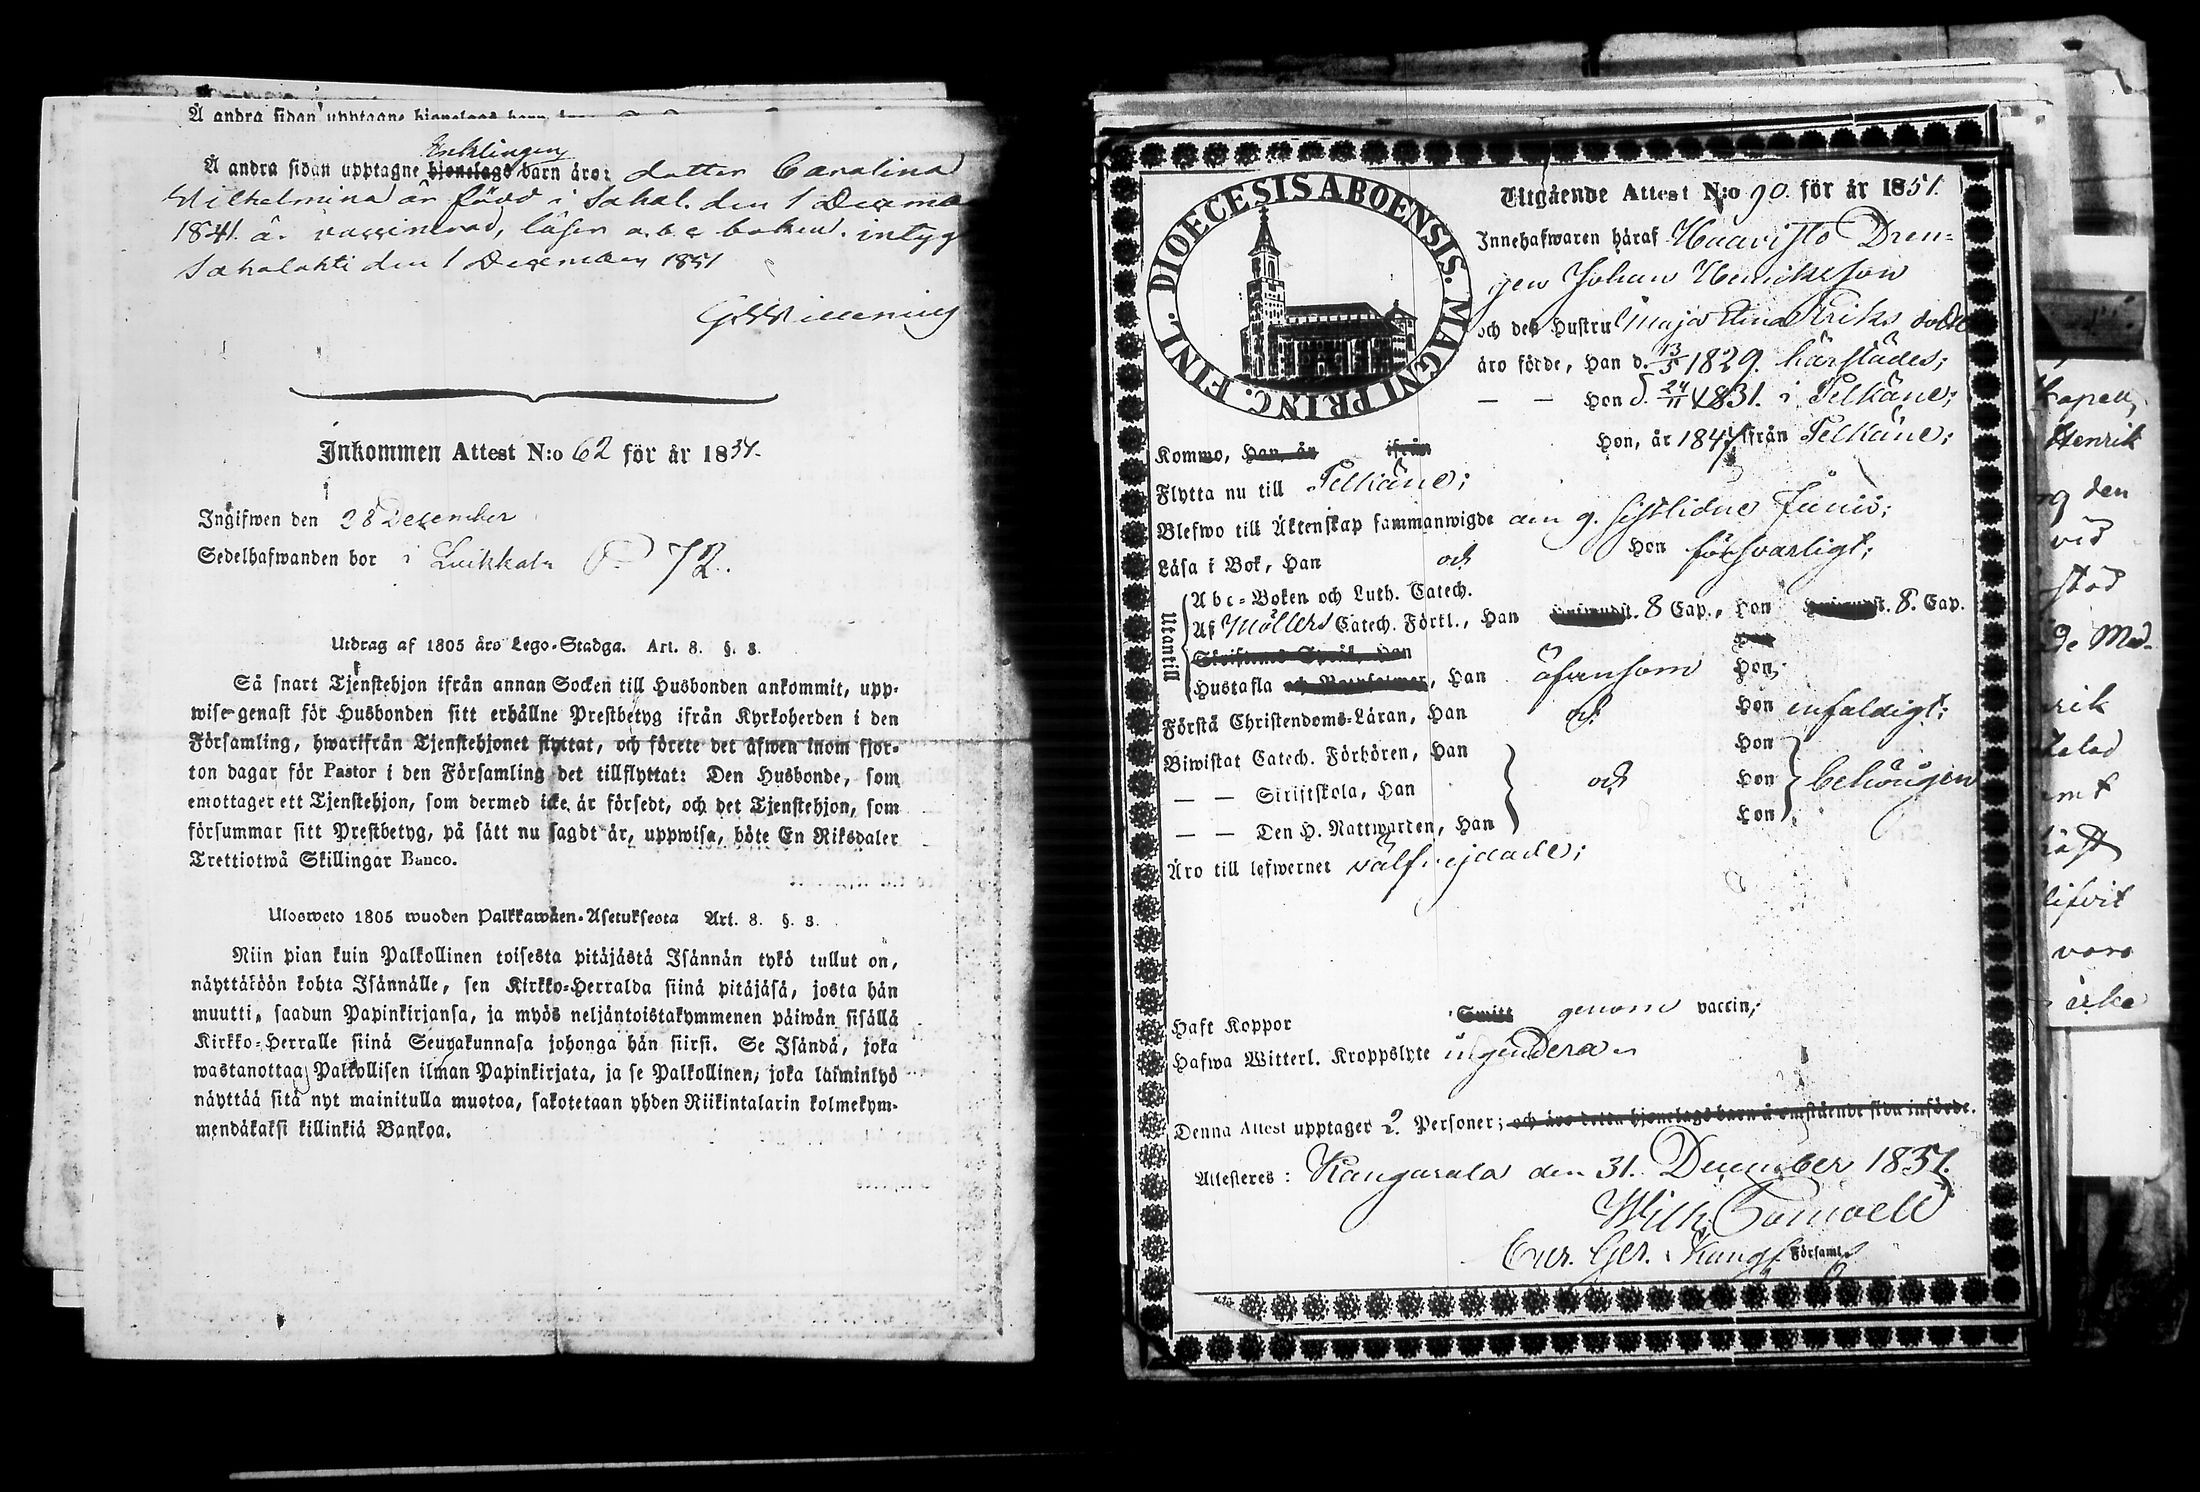 Å andra sidan upptagne hjonelags barn äro
Enklingens
Å andra sidan upptagne hjonelags barn äro: dotter Carolina
Wilhelmina är född i Sahal. den 1 Decemb
1841. är vaccinerad, läser a.b.c boken. intyg
Sahalahti den 1 December 1851
Inkommen Attest N:o 62 för år 1851.
Ingifwen den 28 December
Sedelhafwanden bor i Luikkala P 72.
Utdrag af 1805 års Lego-Stadga. Art. 8. §. 3.
Så snart Tjenstehjon ifrån annan Socken till Husbonden ankommit, upp-
wise genast för Husbonden sitt erhållne Prestbetyg ifrån Kyrkoherden i den
Församling, hwarifrån Tjenstehjonet flyttat, och förete det äfwen inom fjor-
ton dagar för Pastor i den Församling det tillflyttat: Den Husbonde, som
emottager ett Tjenstehjon, som dermed icke är försedt, och det Tjenstehjon, som
försummar sitt Prestbetyg, på sätt nu sagdt är, uppwisa, böte En Riksdaler
Trettiotwå Skillingar Banco.
Ulosweto 1805 wuoden Palkkawäen-Asetuksesta Art. 8. §. 3.
Niin pian kuin Palkollinen toisesta pitäjästä Isännän tykö tullut on,
näyttäköön kohta Isännälle, sen Kirkko-Herralda siinä pitäjäsä, josta hän
muutti, saadun Papinkirjansa, ja myös neljäntoistakymmenen päiwän sisällä
Kirkko-Herralle siinä Seurakunnasa johonga hän siirsi. Se Isändä, joka
wastanottaa Palkollisen ilman Papinkirjata, ja se Palkollinen, joka laiminlyö
näyttää sitä nyt mainitulla muotoa, sakotetaan yhden Riikintalarin kolmekym-
mendäkaksi killinkiä Bankoa.
DIOECESIS ABOENSIS. MAGNI PRINC. FINL.
Utgående Attest N:o 90. för år 1851.
Innehafwaren häraf Haavisto Dren-
gen Johan Henriksson
och dess Hustru Maja Stina Eriks dotter
äro födde, Han d. 13/5 1829. härstädes;
— — Hon d. 24/11 1831. i Pelkäne;
Kommo, Han, år ifrån Hon, år 1847 ifrån Pelkäne;
Flytta nu till Pelkäne;
Blefwo till Äktenskap sammanwigde den 9. sistlidne Junii;
Läsa i Bok, Han och Hon försvarligt;
Utantill
Abc-Boken och Luth. Catech.
Af Möllers Catech. Förkl., Han 8 Cap., Hon 8. Cap.
Skriftenes Språk, Han Hon
Hustafla, Han äfvensom Hon;
Förstå Christendoms-Läran, Han och Hon enfaldigt;
Biwistat Catech. Förhören, Han Hon
— — Skriftskola, Han och Hon behörigen
— — Den H. Nattwarden, Han Hon
Äro till lefwernet välfrejdade;
Haft Koppor Smitt genom vaccin;
Hafwa Witterl. Kroppslyte ingendera
Denna Attest upptager 2. Personer; och äro detta hjonelags barn å omstående sida införde.
Attesteras: Kangasala den 31. December 1851.
Wilh.
Församl.
Henrik
den
vid